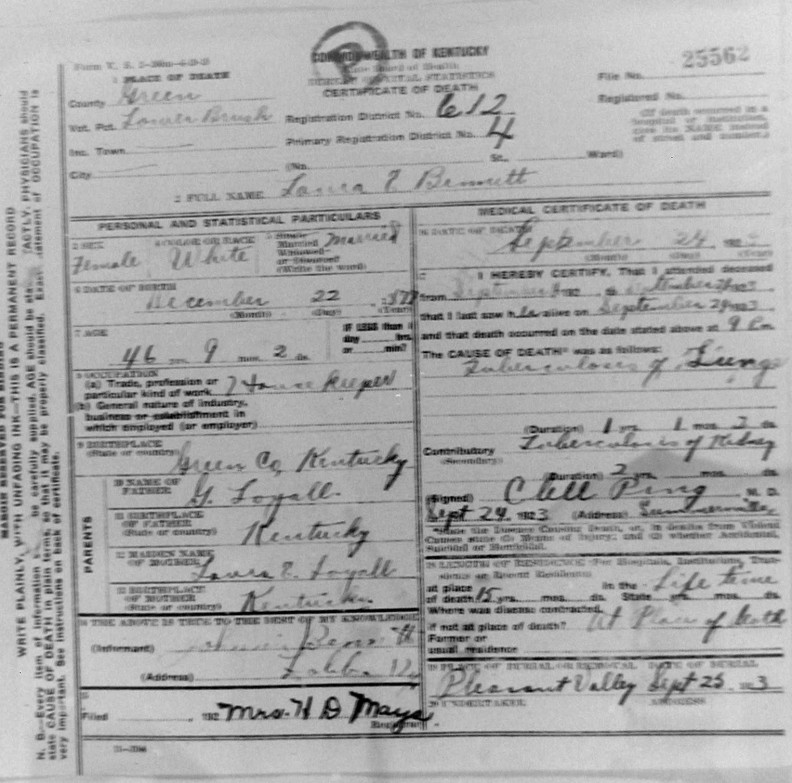 COMMONWEALTH OF KENTUCKY
State Board of Health
BUREAU OF VITAL STATISTICS
CERTIFICATE OF DEATH
25562
File No.
Registered No.
(If death occurred in a hospital or institution, give its NAME instead of street and number.)
Form V. S.
1 PLACE OF DEATH
County Green
Vot. Pct. Lower Brush
Inc. Town
City
Registration District No. 612
Primary Registration District No. 4
(No. St., Ward)
2 FULL NAME Laura E Bennett
PERSONAL AND STATISTICAL PARTICULARS
3 SEX
Female
4 COLOR OR RACE
White
5 Single
Married
Widowed
or Divorced
(Write the word)
Married
6 DATE OF BIRTH
December 22
(Month) (Day) (Year)
7 AGE
46 yrs. 9 mos. 2 ds.
IF LESS than 1
day hrs.
or min?
8 OCCUPATION
(a) Trade, profession or
particular kind of work House Keeper
(b) General nature of industry,
business or establishment in
which employed (or employer)
9 BIRTHPLACE
(State or country) Green Co, Kentucky
PARENTS
10 NAME OF
FATHER G. Loyall
11 BIRTHPLACE
OF FATHER
(State or country) Kentucky
12 MAIDEN NAME
OF MOTHER Laura E. Loyall
13 BIRTHPLACE
OF MOTHER
(State or country) Kentucky
14 THE ABOVE IS TRUE TO THE BEST OF MY KNOWLEDGE
(Informant)
(Address)
15
Filed 192 Mrs. H D Mays
Registrar
MEDICAL CERTIFICATE OF DEATH
16 DATE OF DEATH
September 24 192
(Month) (Day) (Year)
17 I HEREBY CERTIFY, That I attended deceased
from September 192 to September 24 1923
that I last saw her alive on September 24 1923
and that death occurred on the date stated above at 9 P m
The CAUSE OF DEATH* was as follows:
Tuberculosis of Lungs
(Duration) 1 yrs. 1 mos. 2 ds.
Contributory Tuberculosis of Kidney
(Secondary)
(Duration) 2 yrs. mos. ds.
(Signed) Clell Ping M. D.
Sept 24, 1923 (Address) Summersville
*State the Disease Causing Death, or, in deaths from Violent
Causes state (1) Means of Injury; and (2) whether Accidental,
Suicidal or Homicidal.
18 LENGTH OF RESIDENCE (For Hospitals, Institutions, Transients or Recent Residents)
At place In the Life time
of death 15 yrs. mos. ds. State yrs. mos. ds.
Where was disease contracted,
if not at place of death? At Place of Death
Former or
usual residence
19 PLACE OF BURIAL OR REMOVAL DATE OF BURIAL
Pleasant Valley Sept 25, 1923
20 UNDERTAKER ADDRESS
MARGIN RESERVED FOR BINDING
WRITE PLAINLY, WITH UNFADING INK—THIS IS A PERMANENT RECORD
N. B.—Every item of information be carefully supplied. AGE should be EXACTLY. PHYSICIANS should
state CAUSE OF DEATH in plain terms, so that it may be properly classified. Exact statement of OCCUPATION is
very important. See instructions on back of certificate.